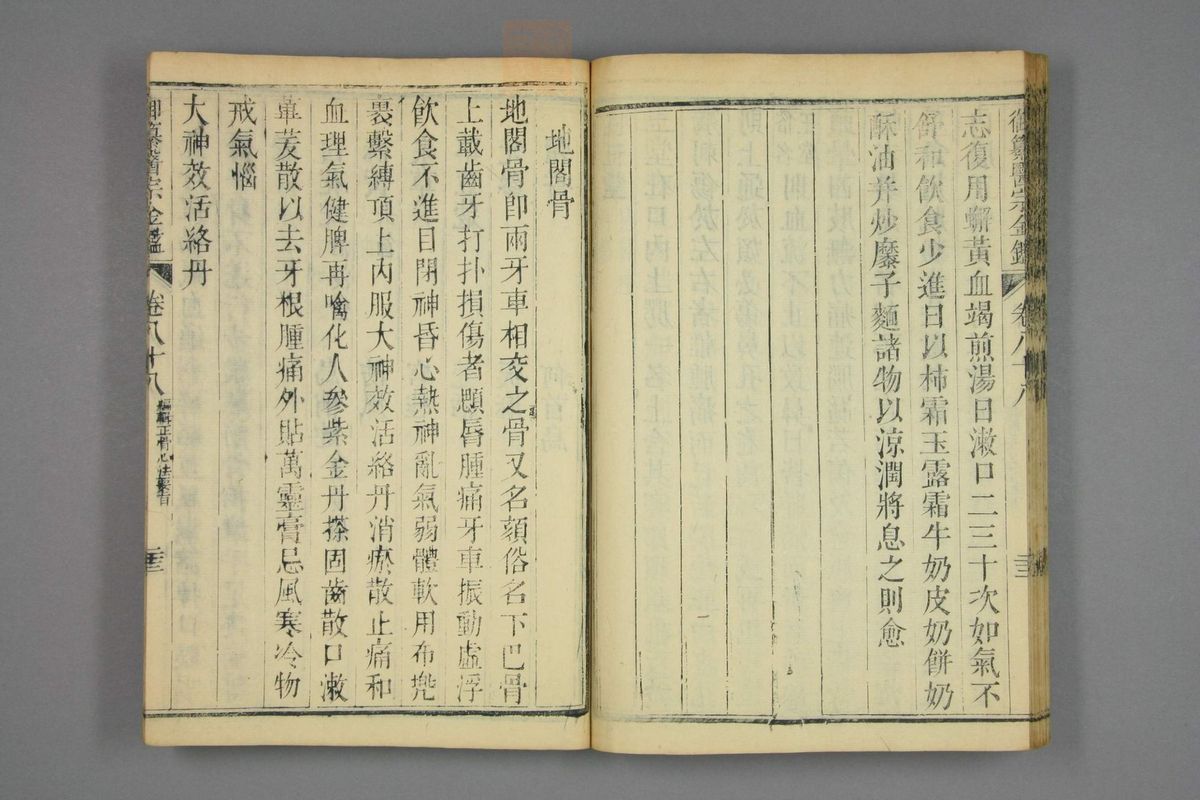 御纂醫宗金鑑 卷八十八
志復用蟹黃血竭煎湯日漱口二三十次如氣不
舒和飲食少進日以柿霜玉露霜牛奶皮奶餅奶
酥油并炒糜子麵諸物以涼潤將息之則愈
地閣骨
地閣骨卽兩牙車相交之骨又名頦俗名下巴骨
上載齒牙打扑損傷者腮唇腫痛牙車振動虛浮
飲食不進目閉神昏心熱神亂氣弱體軟用布兠
裹繫縛頂上內服大神效活絡丹消瘀散止痛和
血理氣健脾再噙化人參紫金丹搽固齒散口漱
蓽茇散以去牙根腫痛外貼萬靈膏忌風寒冷物
戒氣惱
大神效活絡丹
御纂醫宗金鑑 卷八十八 編輯正骨心法要旨